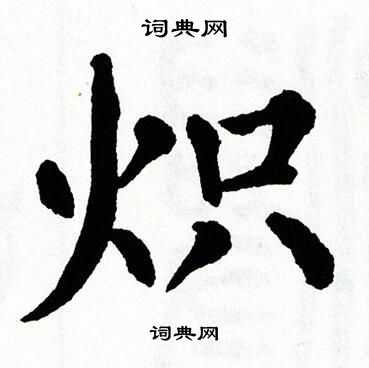 词典网
炽
词典网